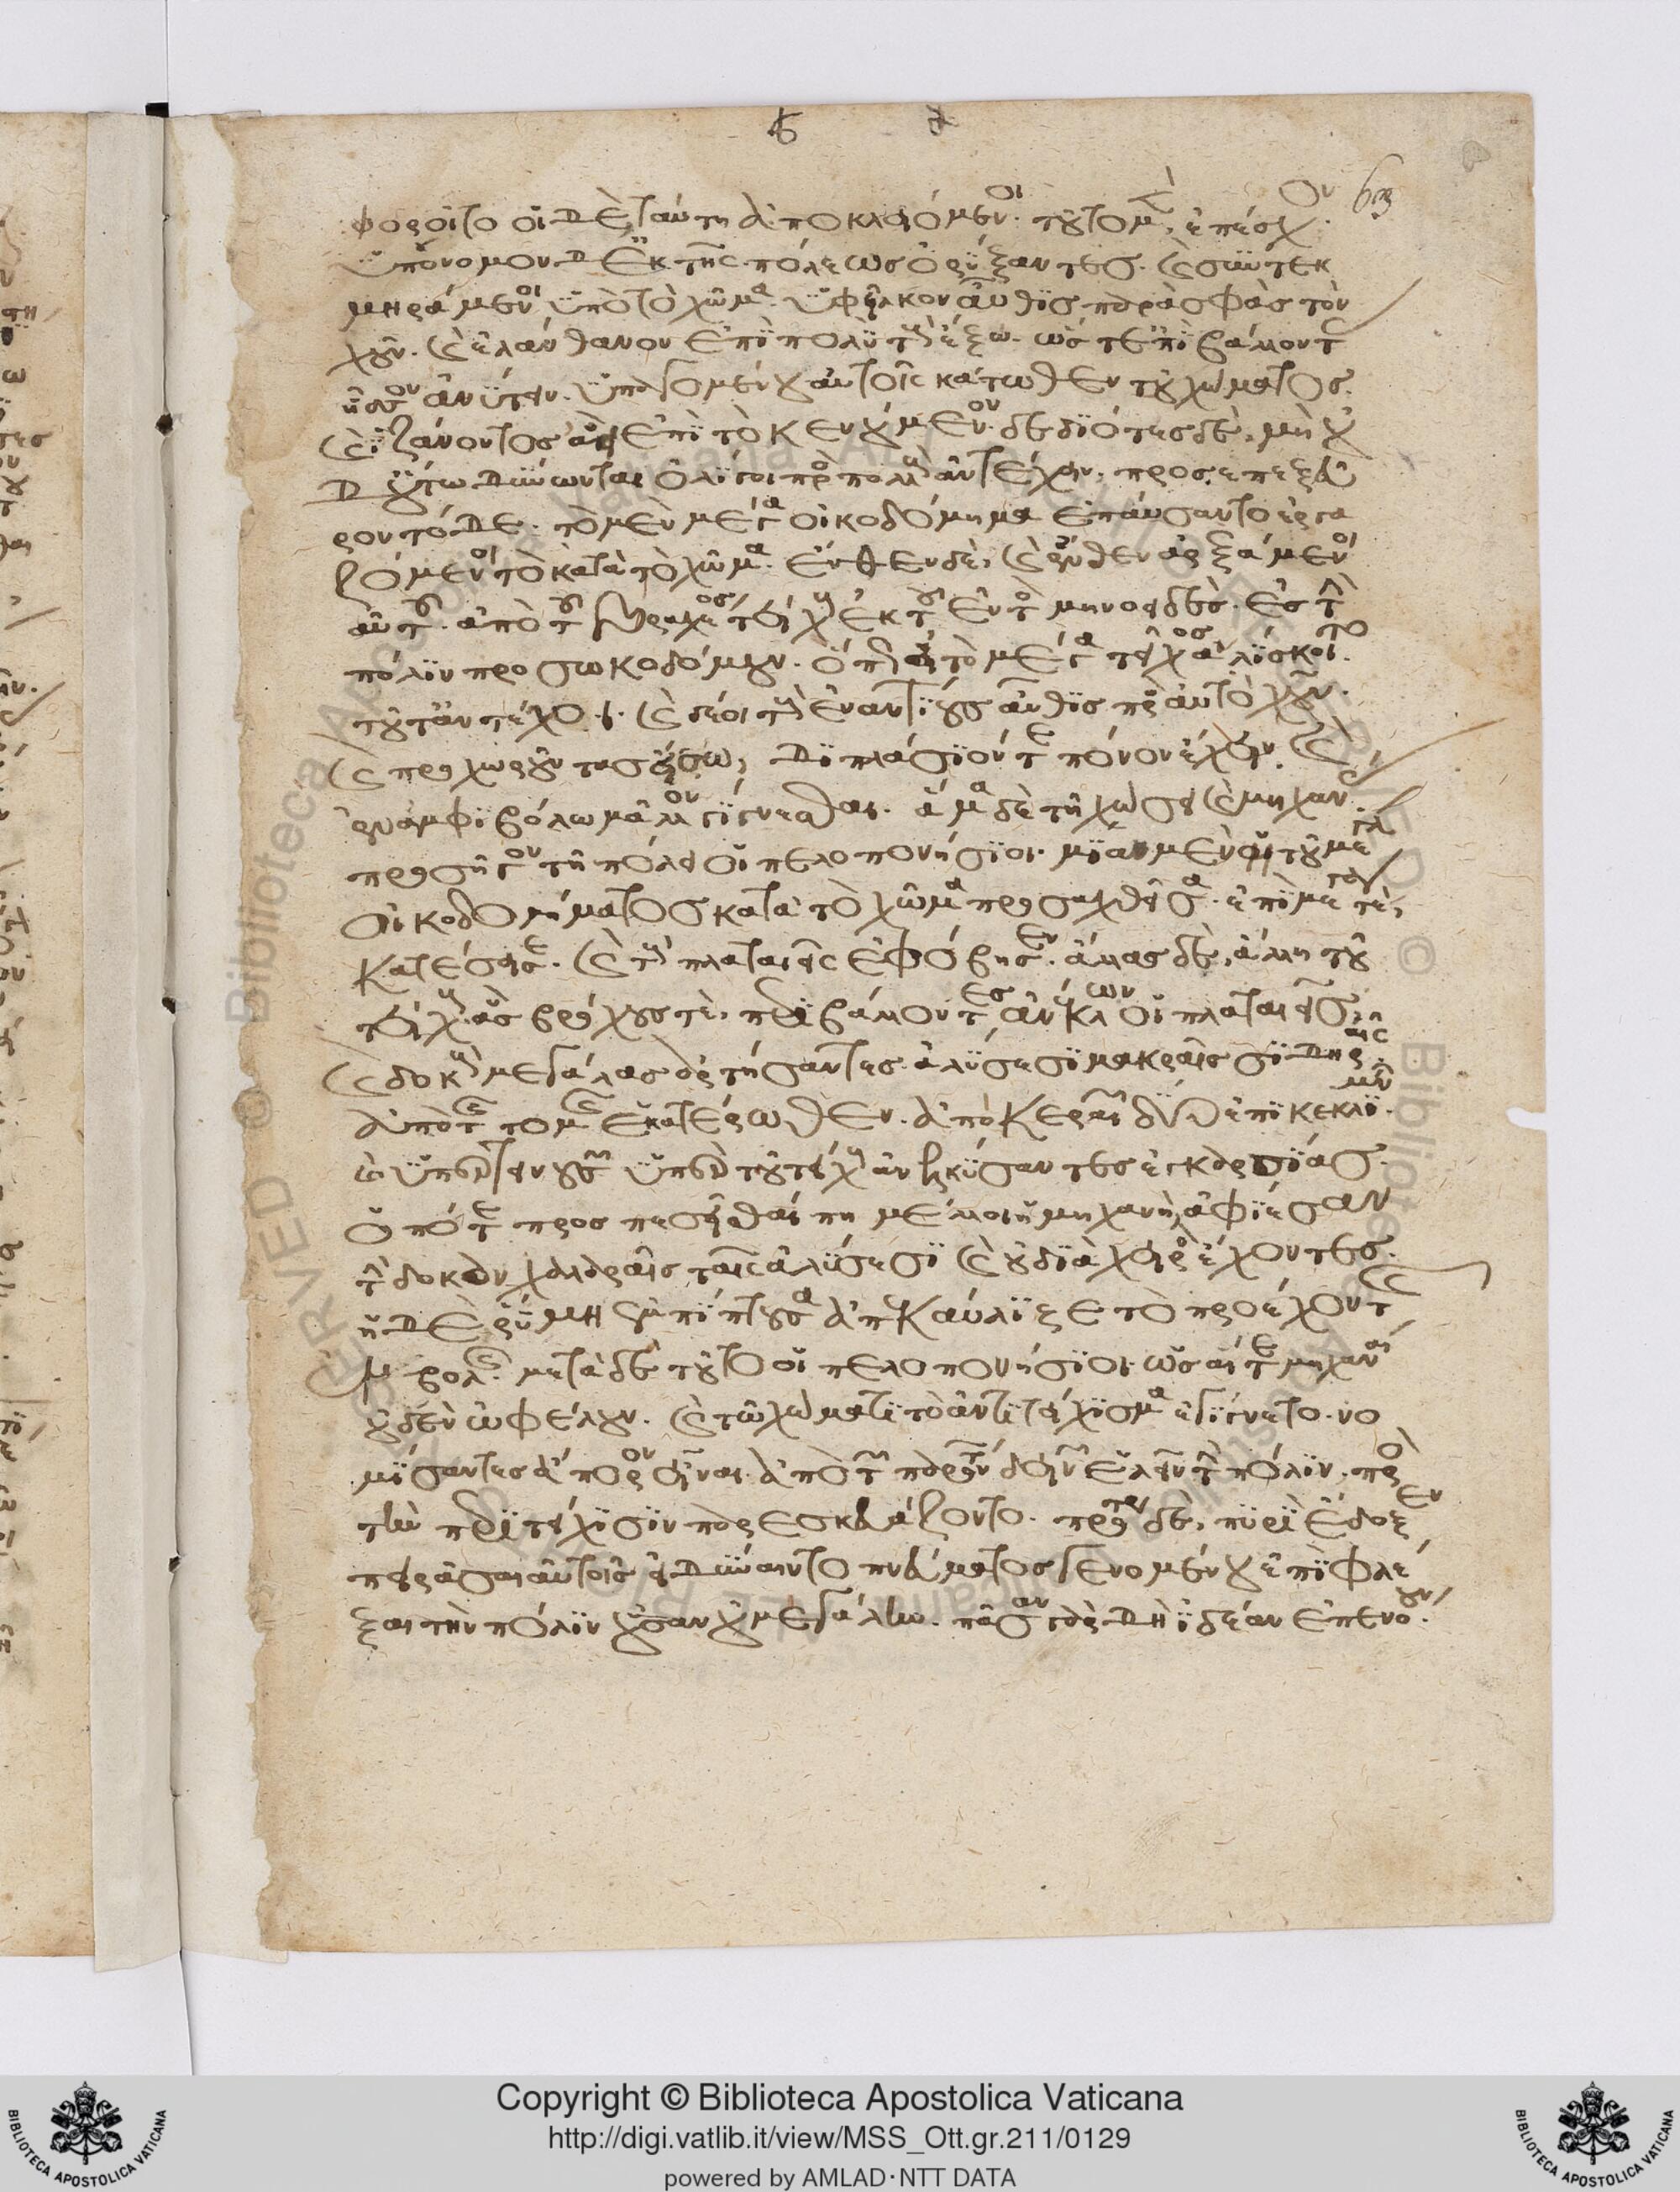 φοροῖτο οἱ δὲ ταύτη ἀποκλειόμενοι. τοῦτο μὲν ἐπέσχον.
ὑπόνομον δὲ ἐκ τῆς πόλεως ὀρύξαντες. καὶ συντεκ
μηράμενοι ὑπὸ τὸ χῶμα. ὑφεῖλκον αὖθις παρὰ σφᾶς τὸν
χοῦν. καὶ ἐλάνθανον ἐπὶ πολὺ τοὺς ἔξω. ὥστε ἐπιβάλλοντας
ἧσσον ἀνύτειν. ὑπαγομένου αὐτοῖς κάτωθεν τοῦ χώματος.
καὶ ἱζάνοντος ἀεὶ ἐπὶ τὸ κενούμενον. δεδιότες δὲ, μὴ οὐ
δ' οὕτω δύνωνται ὀλίγοι πρὸς πολλοὺς ἀντέχειν, προσεπεξεῦ
ρον τόδε. τὸ μὲν μέγα οἰκοδόμημα ἐπαύσαντο ἐργα
ζόμενοι τὸ κατὰ τὸ χῶμα. ἔνθεν δὲ, καὶ ἔνθεν ἀρξάμενοι
αὐτοῦ. ἀπὸ τοῦ βραχέος τείχους ἐκ τοῦ ἐντὸς μηνοειδὲς. ἐς τὴν
πόλιν προσωκοδόμουν. ὅπως εἰ τὸ μέγα τεῖχος ἁλίσκοιτο.
τοῦτ' ἀντέχοι. καὶ δέοι τοὺς ἐναντίους αὖθις πρὸς αὐτὸ χοῦν.
καὶ προχωροῦντας εἴσω, διπλάσιόν τε πόνον ἔχειν. καὶ
ἐν ἀμφιβόλω μᾶλλον γίγνεσθαι. ἅμα δὲ τῆ χώσει καὶ μηχανὰς
προσῆγον τῆ πόλει οἱ πελοπονήσιοι. μίαν μὲν ἣ τοῦ μεγάλου
οἰκοδομήματος κατὰ τὸ χῶμα προσαχθεῖσα. ἐπὶ μέγα τὲ,
κατέσεισε. καὶ τοὺς πλαταιεῖς ἐφόβησεν. ἄλλας δὲ, ἄλλη τοῦ
τείχους. ἃς βρόχους τὲ, περιβάλλοντες ἀνέκλων οἱ πλαταιεῖς.
καὶ δοκοὺς μεγάλας ἀρτήσαντες ἁλύσεσι μακραῖς σιδηραῖς
ἀπὸ τῆς τομῆς ἑκατέρωθεν. ἀπὸ κεραιῶν δύο ἐπικεκλιμένων
καὶ ὑπερτεινουσῶν ὑπὲρ τοῦ τείχους ἀνελκύσαντες ἐγκαρσίας.
ὁπότε προσπεσεῖσθαί πη μέλλοι ἡ μηχανὴ, ἀφίεσαν
τὴν δοκὸν χαλαραῖς ταῖς ἁλύσεσι καὶ οὐ διὰ χειρὸς ἔχοντες.
ἡ δὲ ῥύμη ἐμπίπτουσα ἀπεκαύλιζε τὸ προέχον τῆς
ἐμβολῆς. μετὰ δὲ τοῦτο οἱ πελοπονήσιοι. ὡς αἵ τε μηχαναὶ
οὐδὲν ὠφέλουν. καὶ τῶ χώματι τὸ ἀντιτείχισμα ἐγίγνετο. νο
μίσαντες ἄπορον εἶναι. ἀπὸ τῶν παρόντων δεινῶν ἑλεῖν τὴν πόλιν. πρὸς
τὴν περιτείχισιν παρεσκευάζοντο. πρότερον δὲ, πυρὶ ἔδοξεν
πειρᾶσαι αὐτοῖς εἰ δύναιντο πνεύματος γενομένου ἐπιφλέ
ξαι τὴν πόλιν οὖσαν οὐ μεγάλην. πᾶσαν γὰρ δὴ ἰδέαν ἐπενόουν
Copyright © Biblioteca Apostolica Vaticana
http://digi.vatlib.it/view/MSS_Ott.gr.211/0129
powered by AMLAD·NTT DATA